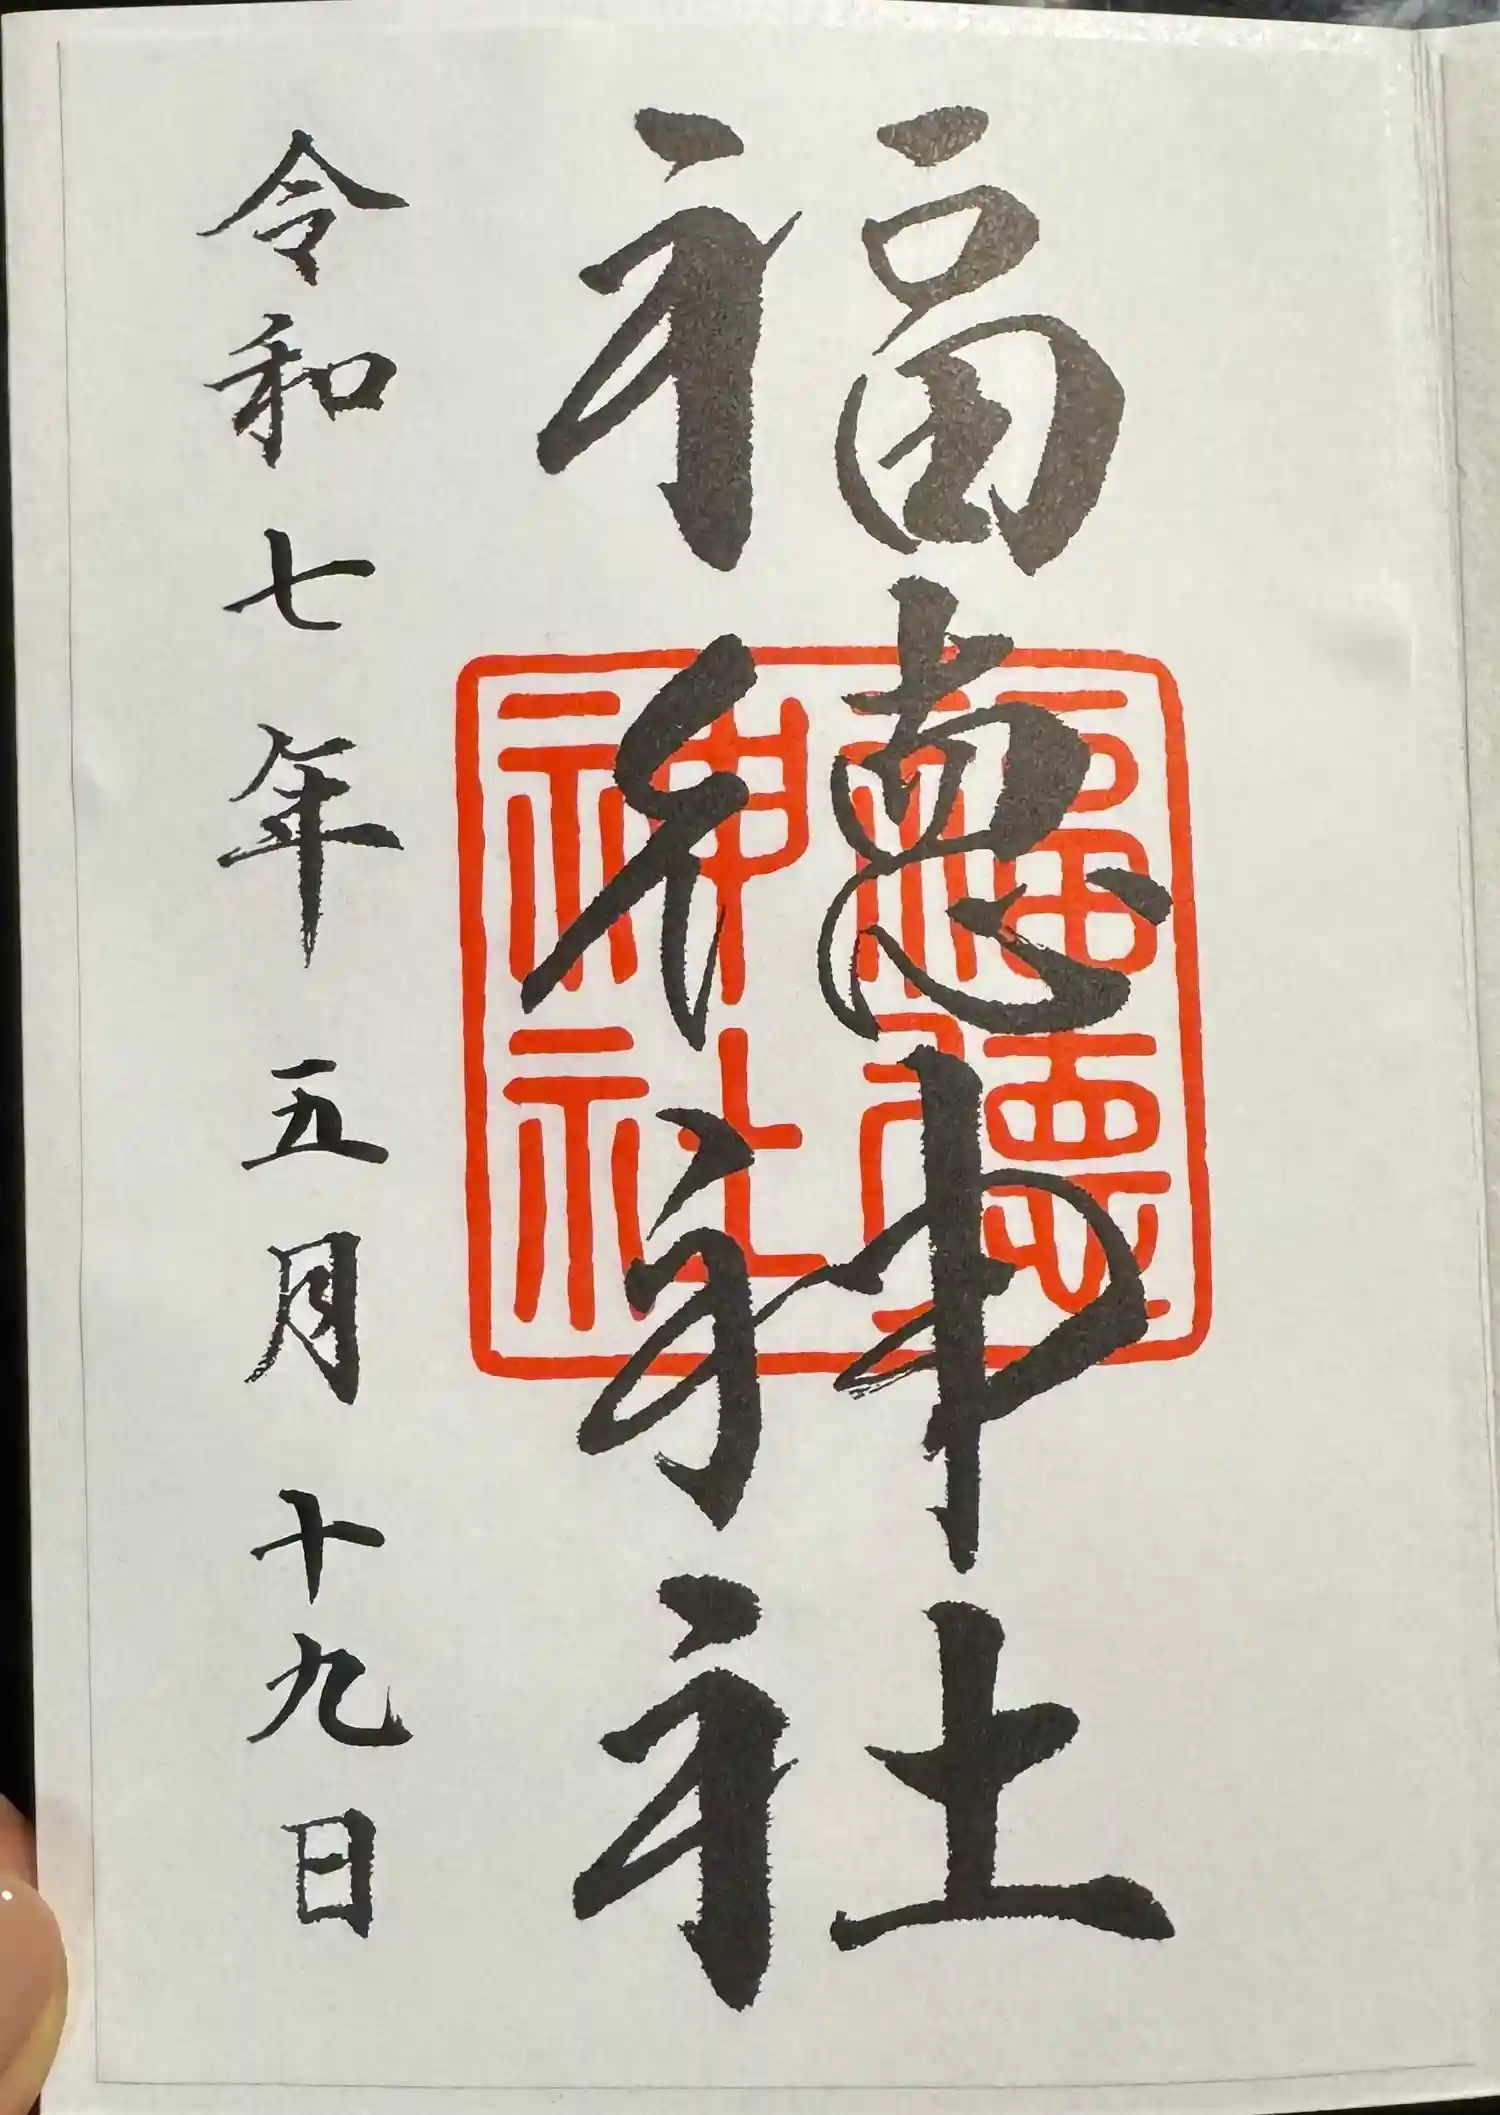 福徳神社
福徳神社
令和七年五月十九日